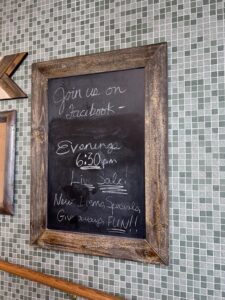 Join us on
Facebook -
Evenings
6:30pm
Live Sale!
New Items, Specials,
Giveaways, FUN!!